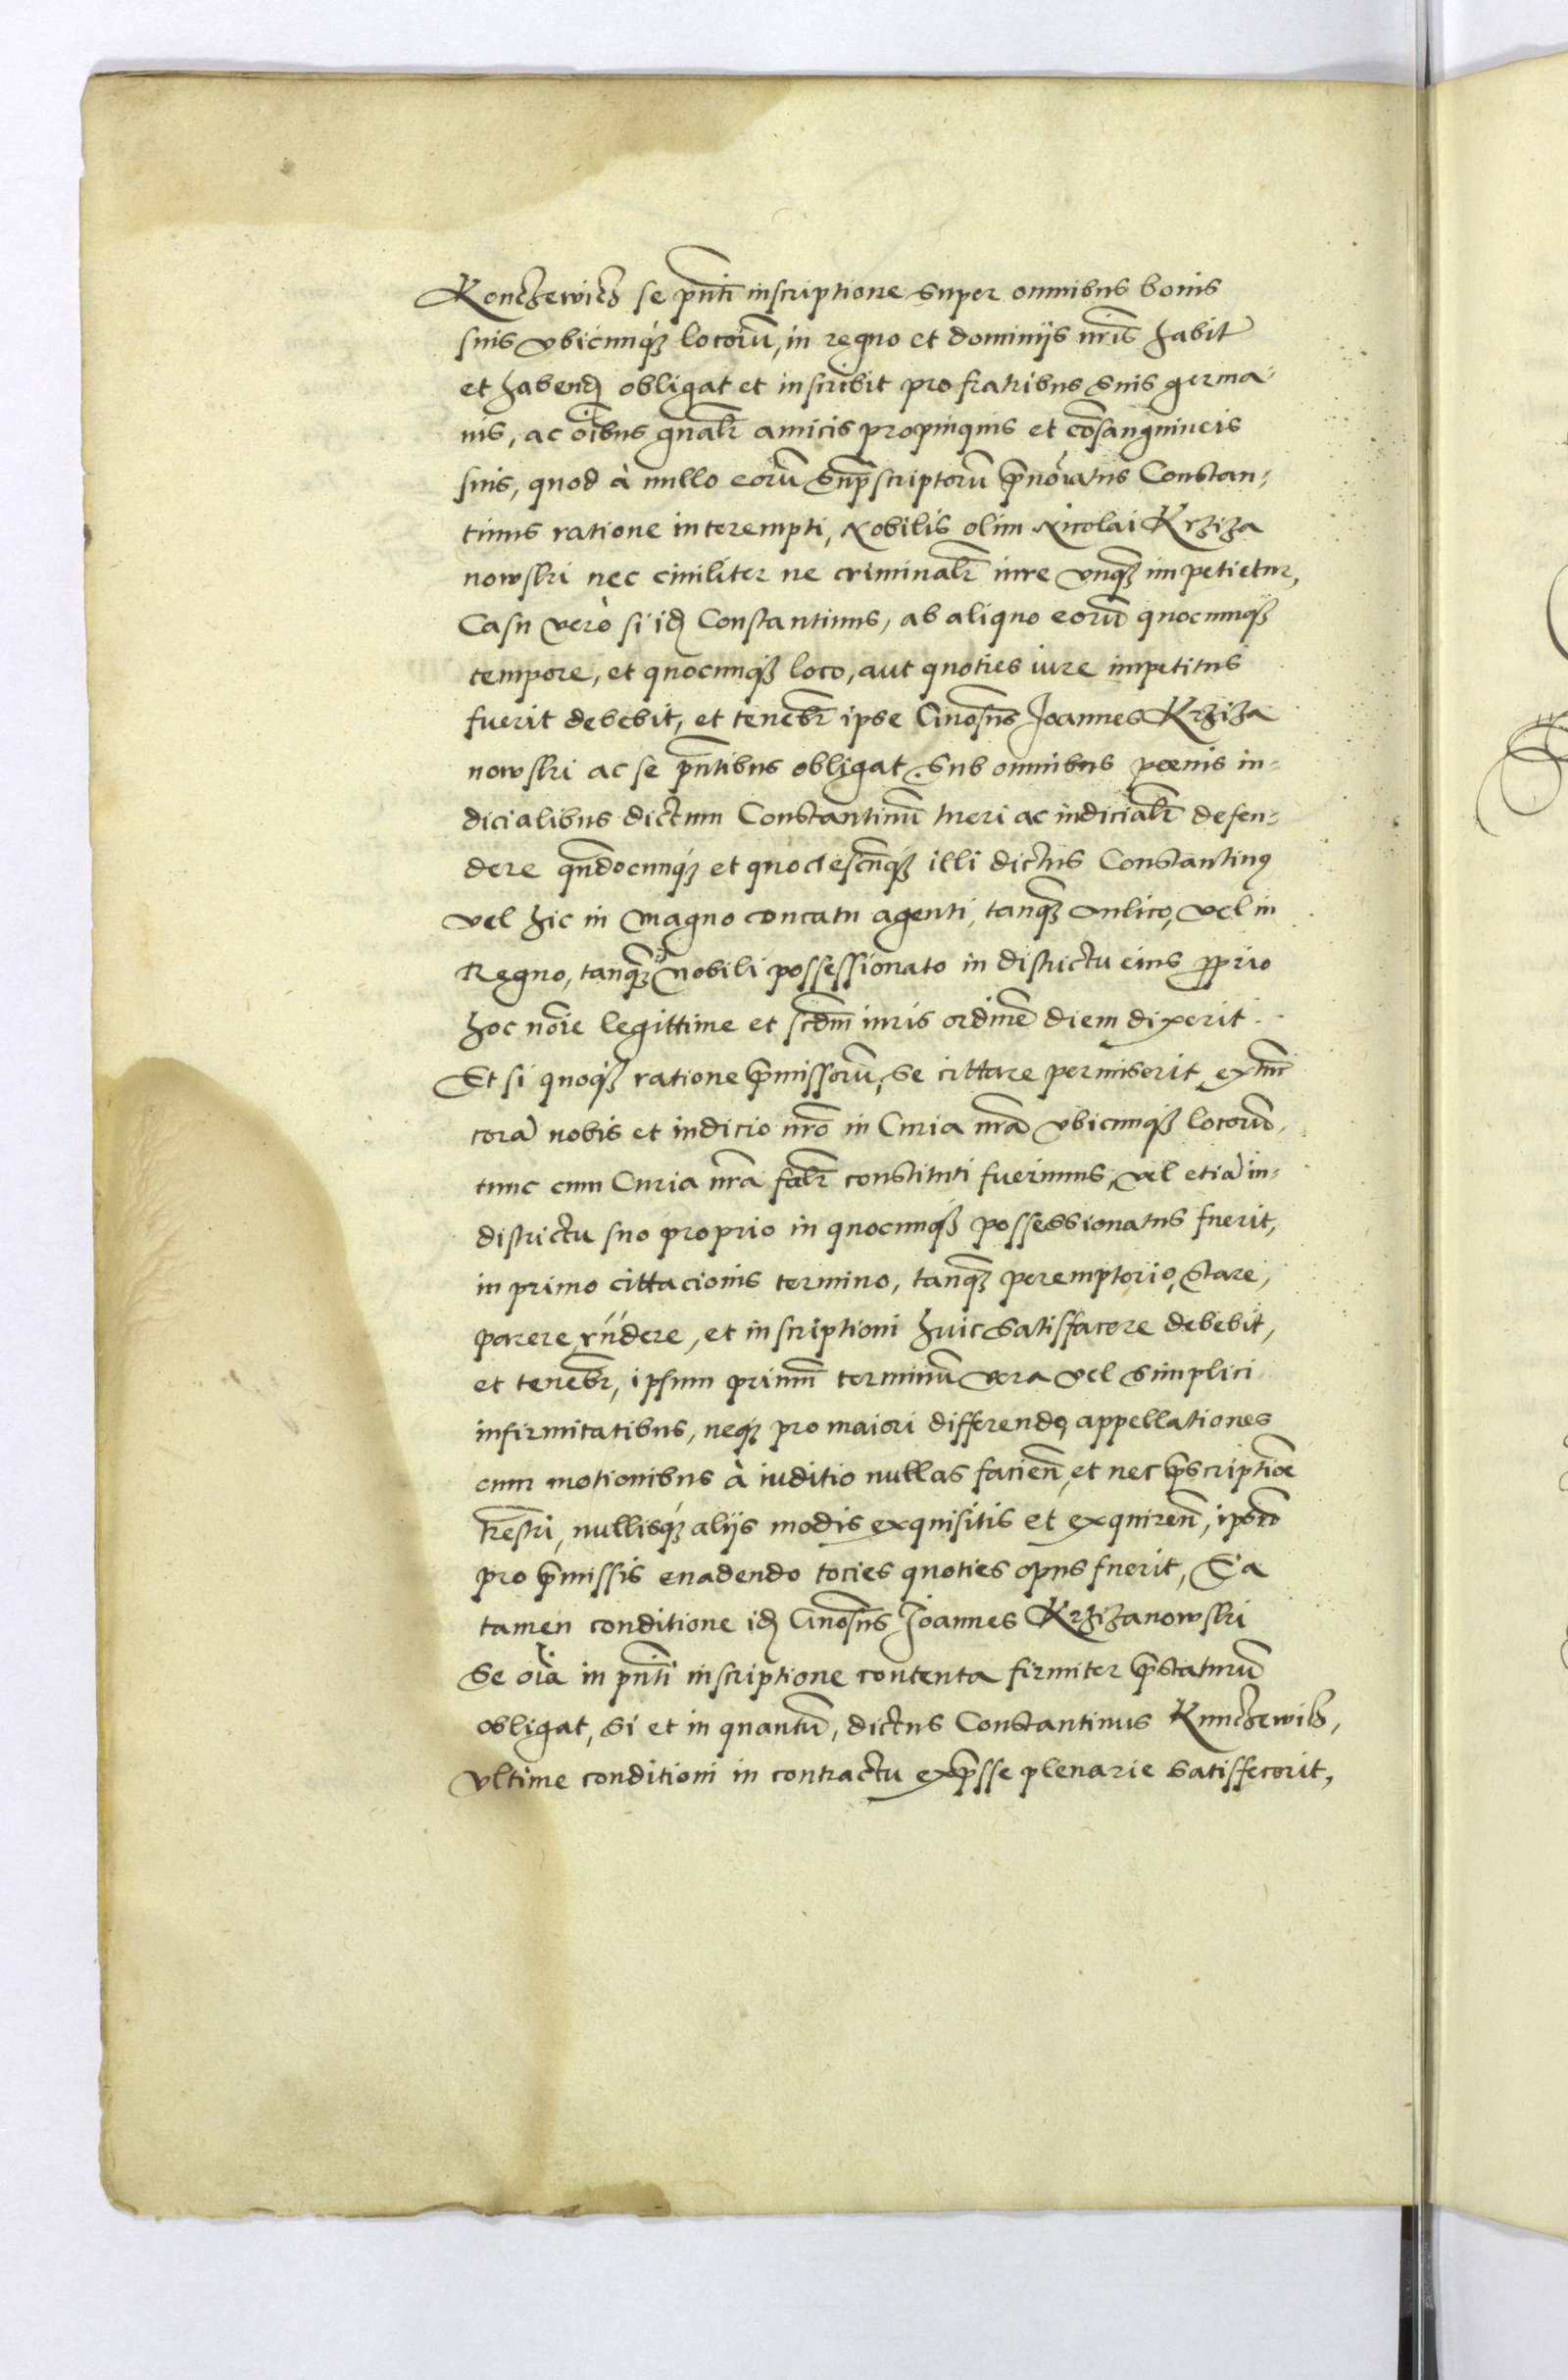 Konczewicz se pn̄ti inscriptione super omnibus bonis
suis vbicunq₃ locorū, in regno et dominijs nr̄is habit
et habend obligat et inscribit pro fratribus suis germa-
nis, ac oībus gn̄alr̄ amicis propinquis et cōsanguineis
suis, quod à nullo eorū sup̄scriptorū p̄noīatus Constan-
tinus ratione interempti, Nobilis olim Nicolai Krziza
nowski nec ciuiliter ne criminalr̄ iure vnq̄₃ impetietur,
Casu verò si id Constantinus, ab aliquo eorū quocunq₃
tempore, et quocunq₃ loco, aut quoties iure impetitus
fuerit debebit, et tenebr̄ ipse Gn̄osus Joannes Krziza
nowski ac se pn̄tibus obligat sub omnibus poenis iu-
dicialibus dictum Constantinū tueri ac iudicialr̄ defen-
dere qn̄docunq₃ et quociescūq₃ illi dictus Constantinus
vel hic in Magno Ducatu agenti, tanq̄₃ Aulico, vel in
Regno, tanq̄₃ Nobili possessionato in districtu eius p̄prio
hoc noīe legittime et scdm̄ iuris ordinē diem dixerit.
Et si quoq₃ ratione p̄missorū, se cittare permiserit extūc
corā nobis et iudicio nr̄o in Curia nr̄a vbicunq₃ locorū,
tunc cum Curia nr̄a falr̄ constituti fuerimus, vel etiā in-
districtu suo proprio in quocunq₃ possessionatus fuerit,
in primo cittacionis termino, tanq̄₃ peremptorio, stare,
parere, rn̄dere, et inscriptioni huic satisfacere debebit,
et tenebr̄, ipsum primū terminū vera vel simplici
infirmitatibus, neq₃ pro maiori differendo, appellationes
cum motionibus à iuditio nullas facien̄, et nec p̄scriptiōe
tr̄estri, nullisq₃ alijs modis exquisitis et exquiren̄, ipsū
pro p̄missis euadendo tocies quoties opus fuerit, Ea
tamen conditione id Gn̄osus Joannes Krzizanowski
Se oīa in pn̄ti inscriptione contenta firmiter p̄staturū
obligat, si et in quantū, dictus Constantinus Kunczewicz,
vltime conditioni in contractu exp̄sse plenarie satisfecerit,